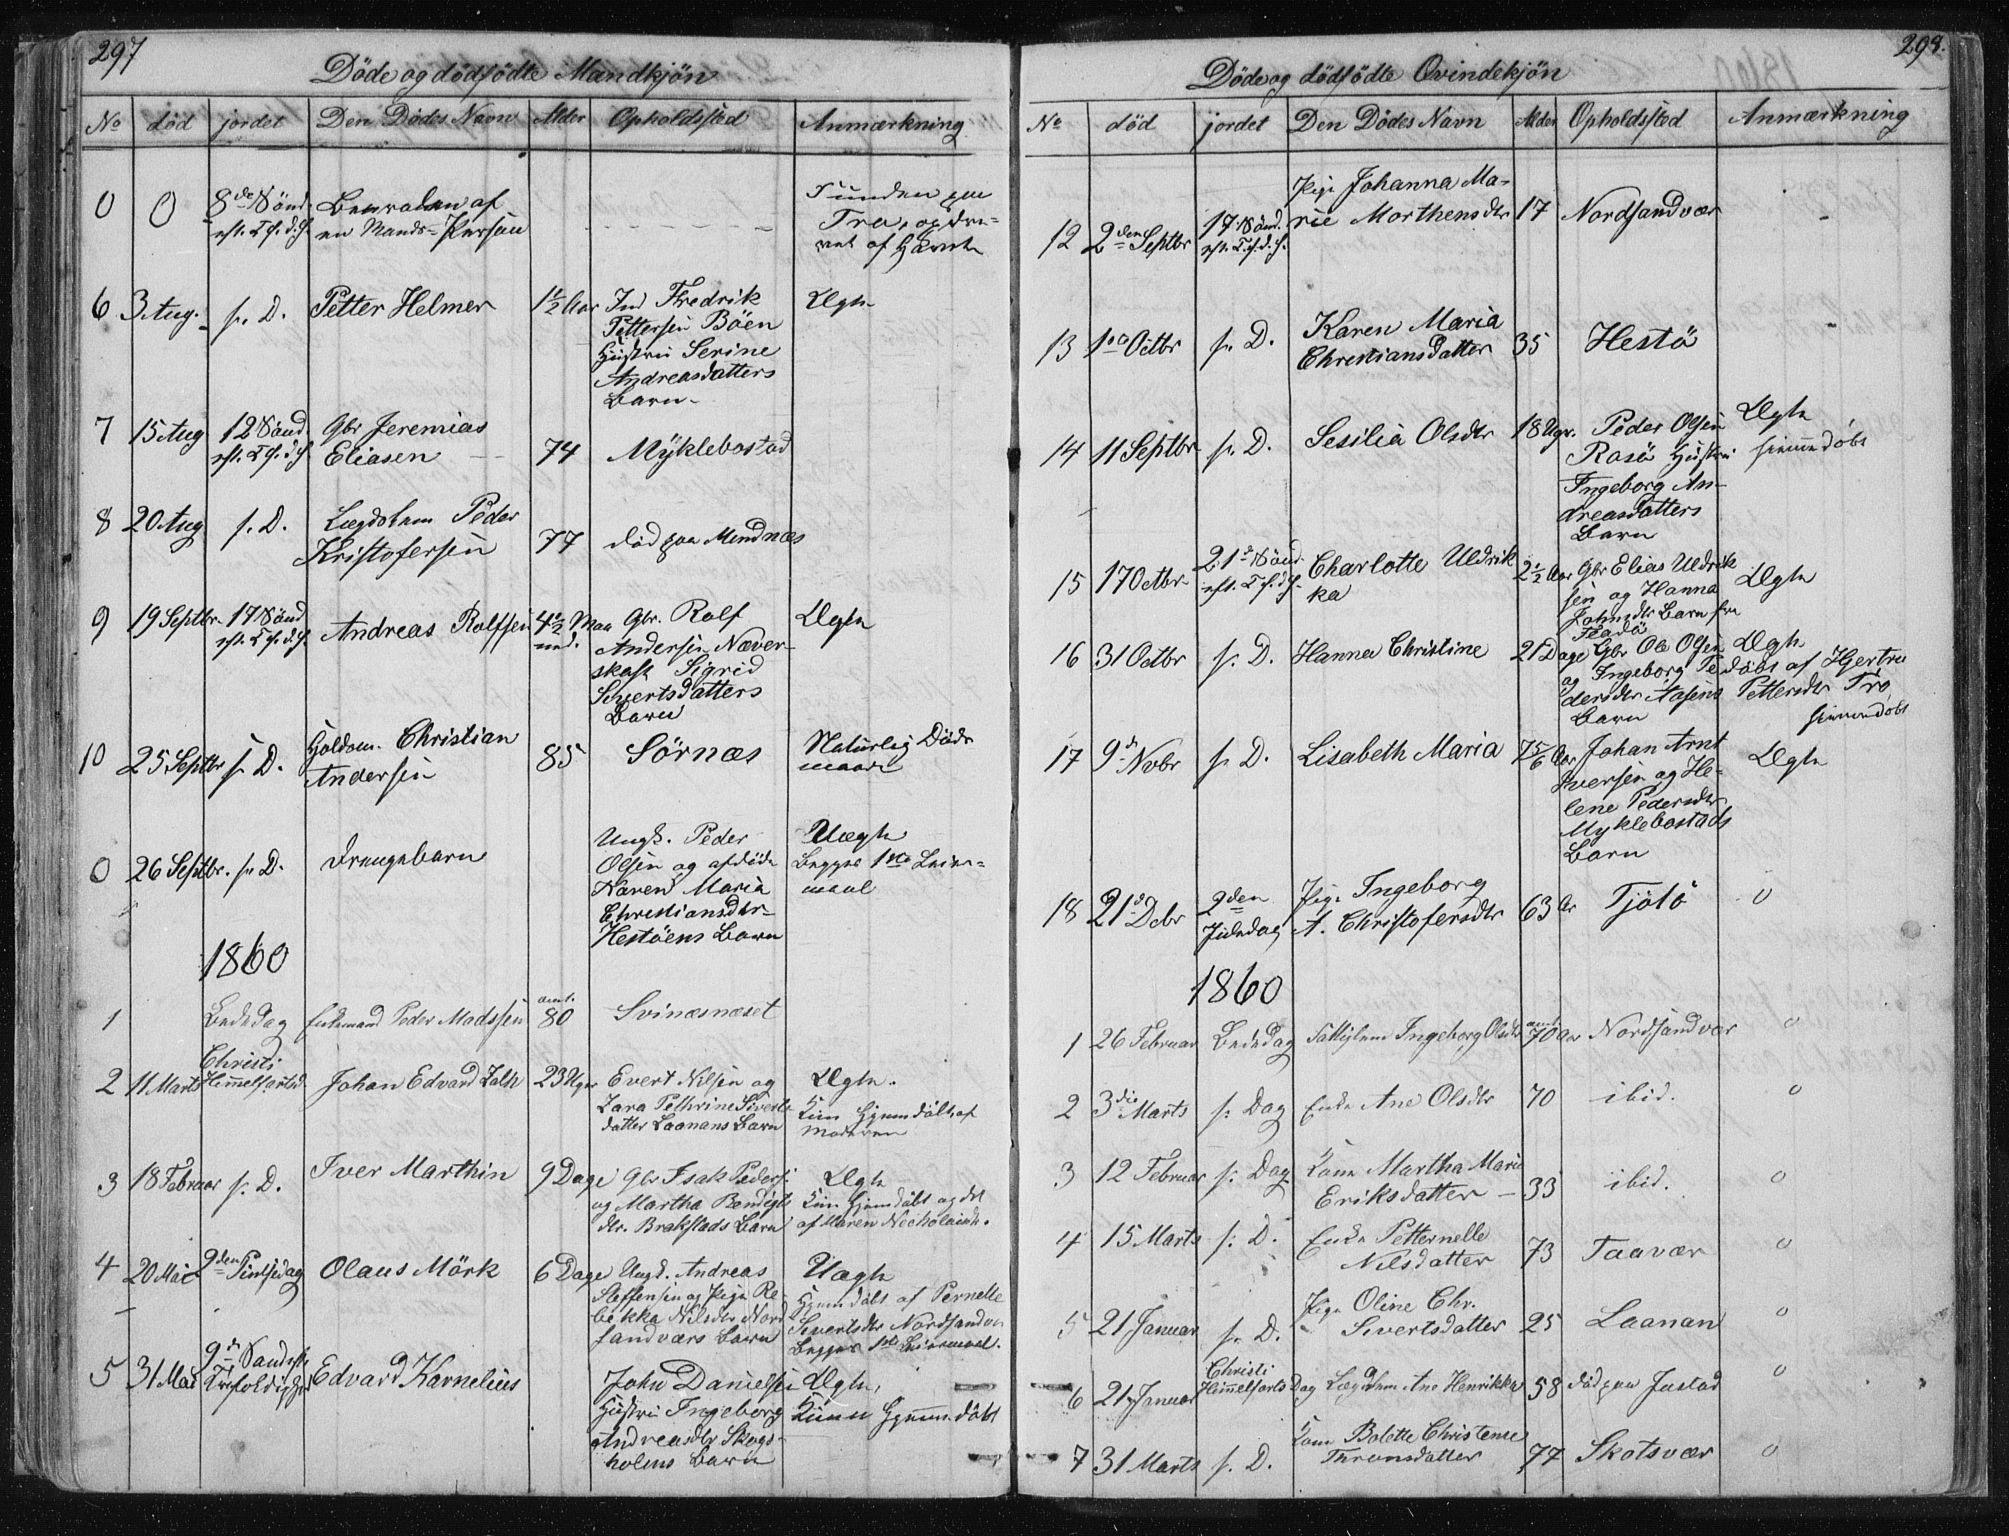 297
Döde og dödfödte Mandkjön
No död jordet Den Dödes Navn Alder Opholdssted Anmærkning
0 0 8de Sönd. eft. T. f. d. H.
Benraden af
en Mands-Person
Funden paa
Tro, og
af Havet
6 3 Aug. s. D. Petter Helmer 1½ Aar Ind Fredrik
Pettersen Böen
Hustru Serine
Andreasdatters
Barn
Ægte
7 15 Aug 12 Sönd. eft. T. f. d. H.
Gbr Jeremias
Eliasen 74 Myklebostad
8 20 Aug s. D. Lægdslem Peder
Kristofersen 77 död paa Mindnæs
9 19 Septbr 17 Sönd eft. T. f. d. H.
Andreas Rolfsen 4½ Maa
ned.
Gbr. Rolf
Andersen Næver-
skaft Sigrid
Sivertsdatters
Barn
Ægte
10 25 Septbr s. D. Holdom. Christian
Andersen 85 Sörnæs Naturlig Döds
maade
0 26 Septbr. s. D. Drengebarn
Ungk. Peder
Olsen og afdöde
Karen Maria
Christiansdtr
Hestöens Barn
Uægte
Begges 1ste Leier-
maal
1860
1 Bededag Enkemand Peder Madssen amt. 80 Svinæsnæset
2 11 Marts Christi
Himmelfartsd. Johan Edvard 23 Uger
Evert Nilsen og
Lara Pethrine Siverts
datter Laanans Barn
Ægte.
Kun Hjemdöbt af
Moderen
3 18 Februar s. D. Iver Marthin 9 Dage
Gbr Isak Peders.
og Martha Bendigts
dtr. Brakstads Barn
Ægte
Kun Hjemdöbt og det
af Maren
4 20 Mai 2den Pintsedag Olaus Mörk 6 Dage
Ungd. Andreas
Steffensen og Pige Re-
bekka Nilsdtr Nord
sandværs Barn
Uægte
Hjemdöbt af Pernelle
Sivertsdtr Nordsandvær
Begges 1ste Leiermaal.
5 31 Mai 9de Sönd eft
Trefoldighed Edvard Kornelius
John Danielsen
Hustru Ingeborg
Andreasdtr Skogs-
holms Barn
Ægte,
Kun Hjemmedöbt
298.
Döde og dödfödte Qvindekjön
No död jordet Den Dödes Navn Alder Opholdssted Anmærkning
12 2den Septbr 17 Sönd.
eft. T. f. d. H.
Pige Johanna Ma-
rie Morthensdtr 17 Nordsandvær
13 1ste Octbr s. D. Karen Maria
Christiansdatter 35 Hestö
14 11 Septbr s. D. Sesilia Olsdtr 18 Uger.
Peder Olsen
Rosö Hustru
Ingeborg An-
dreasdatters
Barn
Ægte
hjemmedöbt
15 17 Octbr 21de Sönd
eft. T. f. d. H.
Charlotte Uldrik
ka 2½ Aar
Gbr Elias Uldrik
sen og Hanna
Johnsdtr Barn fra
Fladö
Ægte
16 31 Octbr s. D. Hanna Christine 21 Dage
Gbr Ole Olsen
og Ingeborg Pe
dersdtr Aasens
Barn
Ægte
döbt af Hjertru
Pettersdtr Tro
hjemmedöbt
17 9de Novbr s. D. Lisabeth Maria 7 5/6 Aar
Johan Arnt
Iversen og He-
lene Pedersdtr
Myklebostads
Barn
Ægte
18 21de Debr 2den
Juledag
Pige Ingeborg
A. Christofersdtr 63 Ar Tjötö 0
1860
1 26 Februar Bededag Fattiglem Ingeborg Olsdtr amt 70 Aar Nordsandvær 0
2 3die Marts s: Dag Enke Ane Olsdtr 70 ibid. 0
3 12 Februar s: Dag Kone Martha Marie
Eriksdatter 33 ibid. 0
4 15 Marts s: D. Enke Petternelle
Nilsdatter 73 Taavær 0
5 21 Januar s. D. Pige Oline Chr.
Sivertsdatter 25 Laanan 0
6 21 Januar Christi
Himmelfarts Dag Lægdslem Ane Henrikke 58 död paa Jastad 0
7 31 Marts s. D. Kone Bolette Christense
Thronsdatter 77 Skotsvær 0